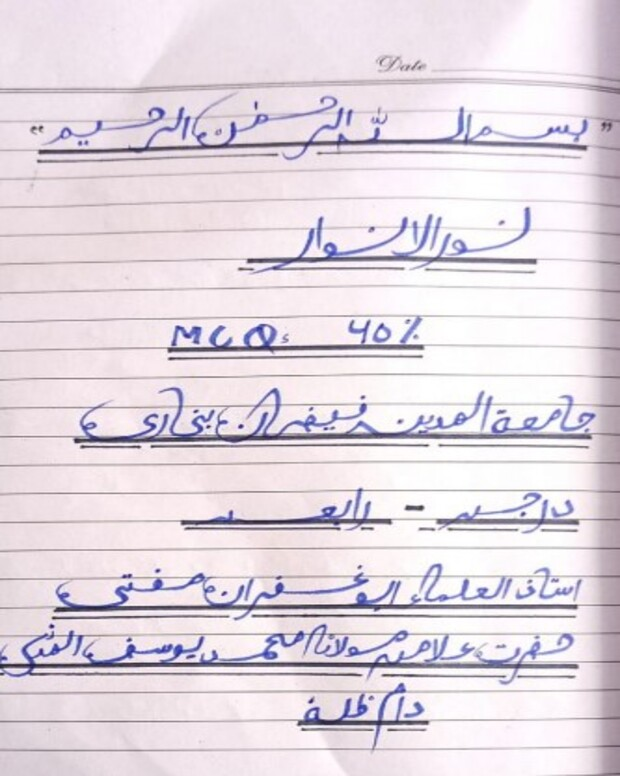 Date
"بسم اللہ الرحمن الرحیم"
نور الانوار
MCQs 40%
جامعۃ المدینہ فیضان بخاری
درجہ - رابعہ
استاذ العلماء ابو غفران مفتی
حضرت علامہ مولانا محمد یوسف المدنی
دام ظلہ